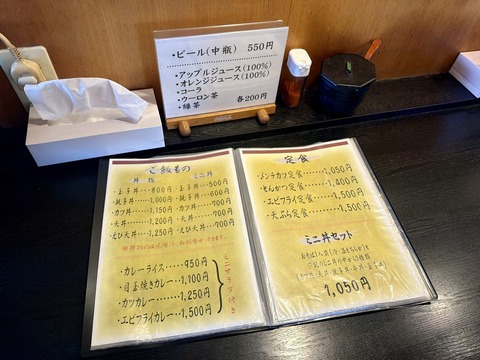 ・ビール(中瓶) 550円
・アップルジュース(100%)
・オレンジジュース(100%)
・コーラ
・ウーロン茶 各200円
・緑茶
ご飯もの
丼 ミニ丼
・玉子丼・・800円 ・玉子丼・・500円
・親子丼・・1,000円 ・親子丼・・600円
・カツ丼・・1,150円 ・カツ丼・・700円
・天丼・・1,200円 ・天丼・・700円
・えび天丼・・1,250円 ・えび天丼・・750円
・カレーライス・・950円
・目玉焼きカレー・・1,100円
・カツカレー・・1,250円
・エビフライカレー・・1,500円
ミニサラダ付き
定食
・メンチカツ定食・・1,050円
・とんかつ定食・・1,400円
・エビフライ定食・・1,500円
・天ぷら定食・・1,500円
ミニ丼セット
1,050円